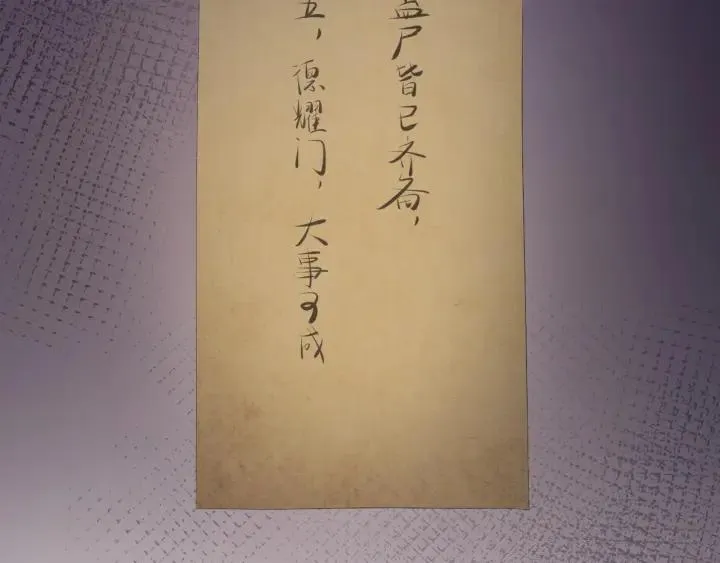 尸皆已齐备，
五，德耀门，大事可成